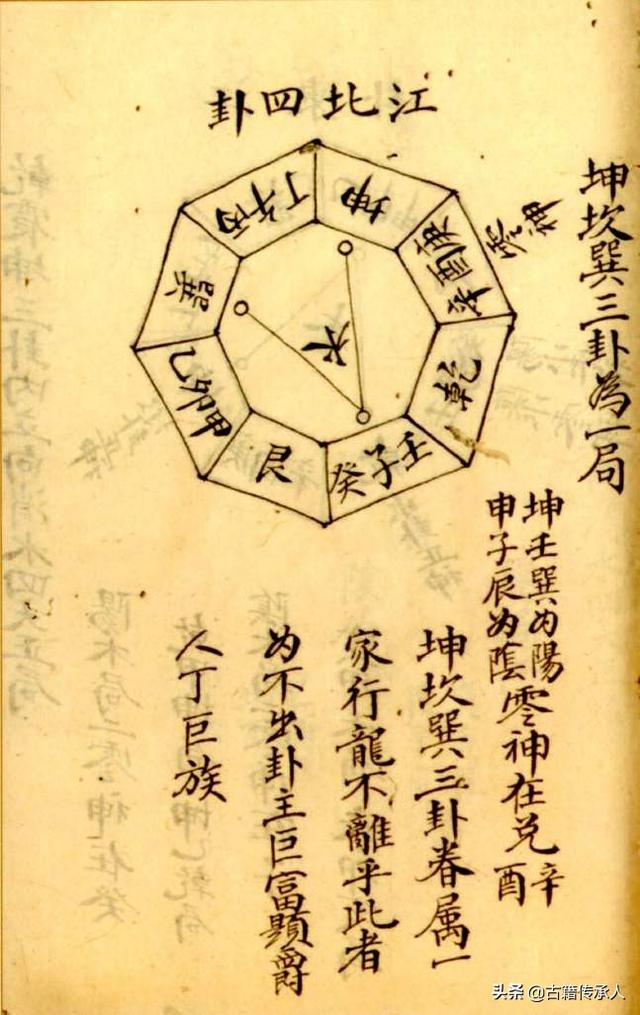 江北四卦
坤
庚酉辛
乾
壬子癸
艮
甲卯乙
巽
丙午丁
水
零神
坤坎巽三卦為一局
坤壬巽为陽
申子辰为陰
零神在兑
辛
酉
坤坎巽三卦眷属一
家行龍不離乎此者
为不出卦主巨富顯爵
人丁巨族
头条 @古籍传承人